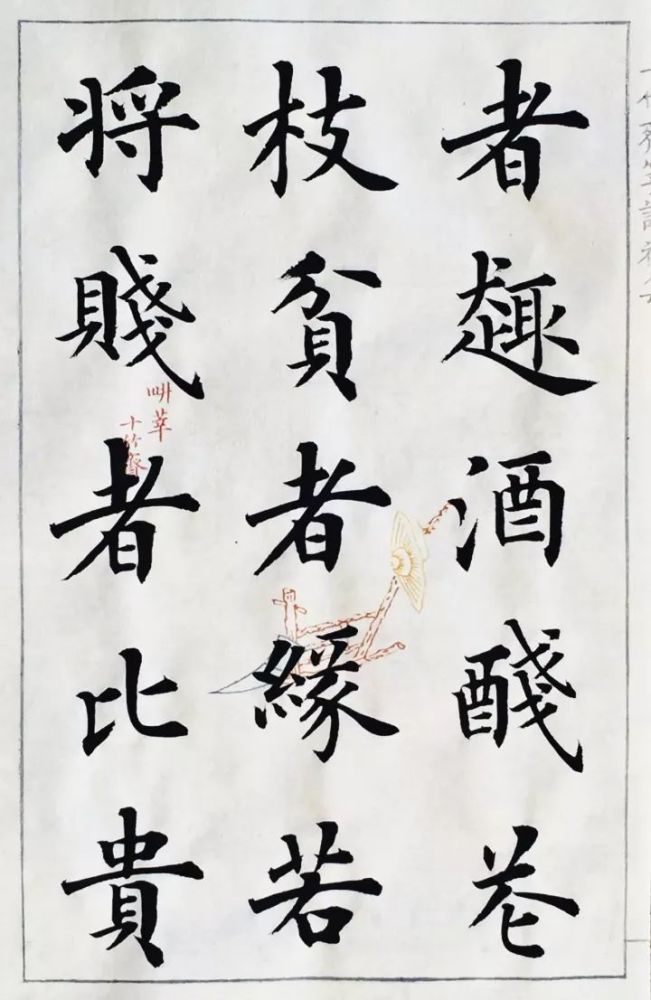 者趣酒醆花
枝貧者緣若
将賤者比貴
畊莘
十竹齋